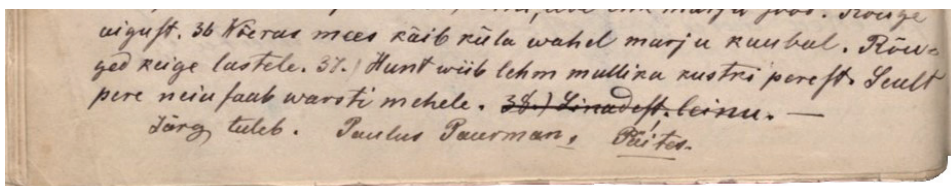 aigust. 36 Wõeras mees käib küla wahel marju kaubal. Rõu-
ged keige lastele. 37.) Hunt wiib lehm mullika kustki perest. Sealt
pere neiu saab warsti mehele. 38.) Linadest. leinu. —
Järg tuleb. Paulus Paurman, Päites.